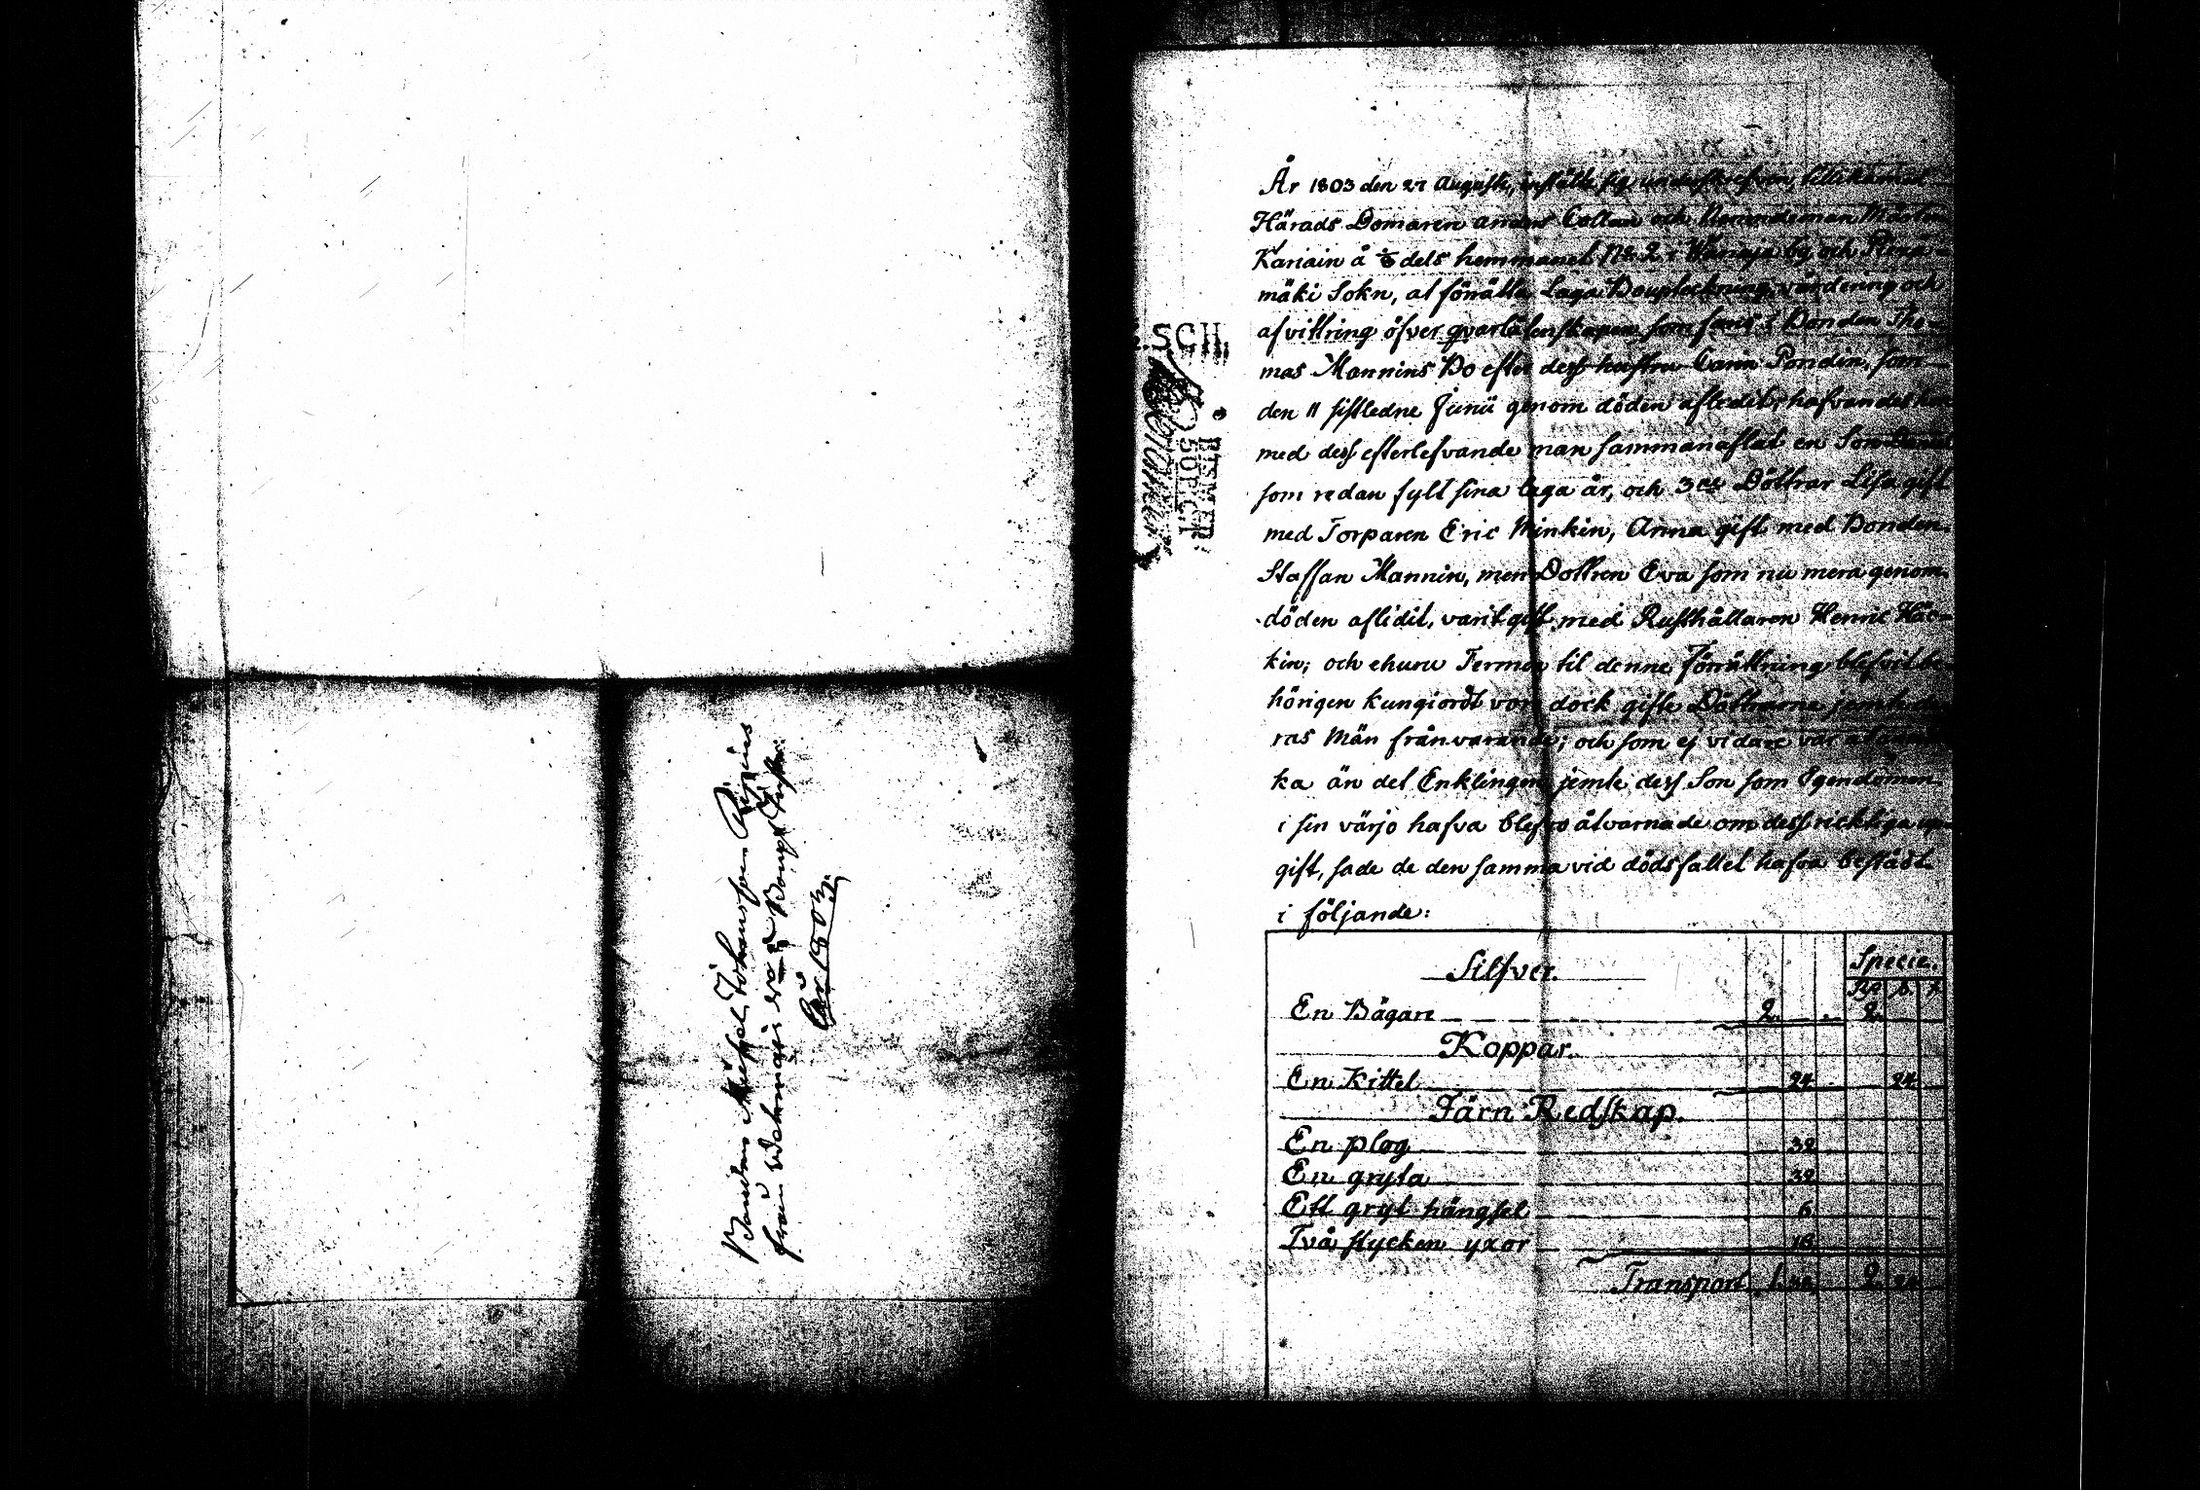 Bonden Michel Johansson Räjiüs
från Wehmais
År 1803.
.SCH.
50 P. CT
År 1803 den 27 Augusti, instälte sig undertecknan,
Härads Domaren anders Collan och Nemndeman Mårten
Kariain å dels hemmanet No 2 i Wanaja by och Pirra-
mäki Sokn, at förrätta Laga Bouptekning, värdering och
afvittring öfver qvarlåtenskapen som fans i Bonden Tho-
mas Mannins Bo efter dess hustru Carin Pondin, som
den 11 sistledne Junii genom döden afledit, hafvandes hon
med dess efterlefvande man sammanaflat en Son
som redan fylt sina laga år, och 3ne Döttrar Lisa gift
med Torparen Eric Minkin, Anna gift med Bonden
Staffan Mannin, men Dottren Eva som nu mera genom
döden aflidit, varit gift med Rusthållaren Henric Häc-
kin; och ehuru Termen til denne förrättning blefvit be-
hörigen kungiordt voro dock gifte Döttrarne jemte de-
ras Män frånvarande; och som ej vidare var at
ka än det Enklingen jemte dess Son som Egendomen
i sin värjo hafva blefvo åtvarnade om dess ricktiga up-
gift, sade de den samma vid dödsfallet hafva bestådt
i följande:
Silfver. Specie.
En Bägare 2. 2.
Koppar.
En Kittel 24 24
Järn Redskap.
En plog 32
En gryta 32
Ett gryt hängsel 6
Två stycken yxor 16
Transport 1. 2. 24